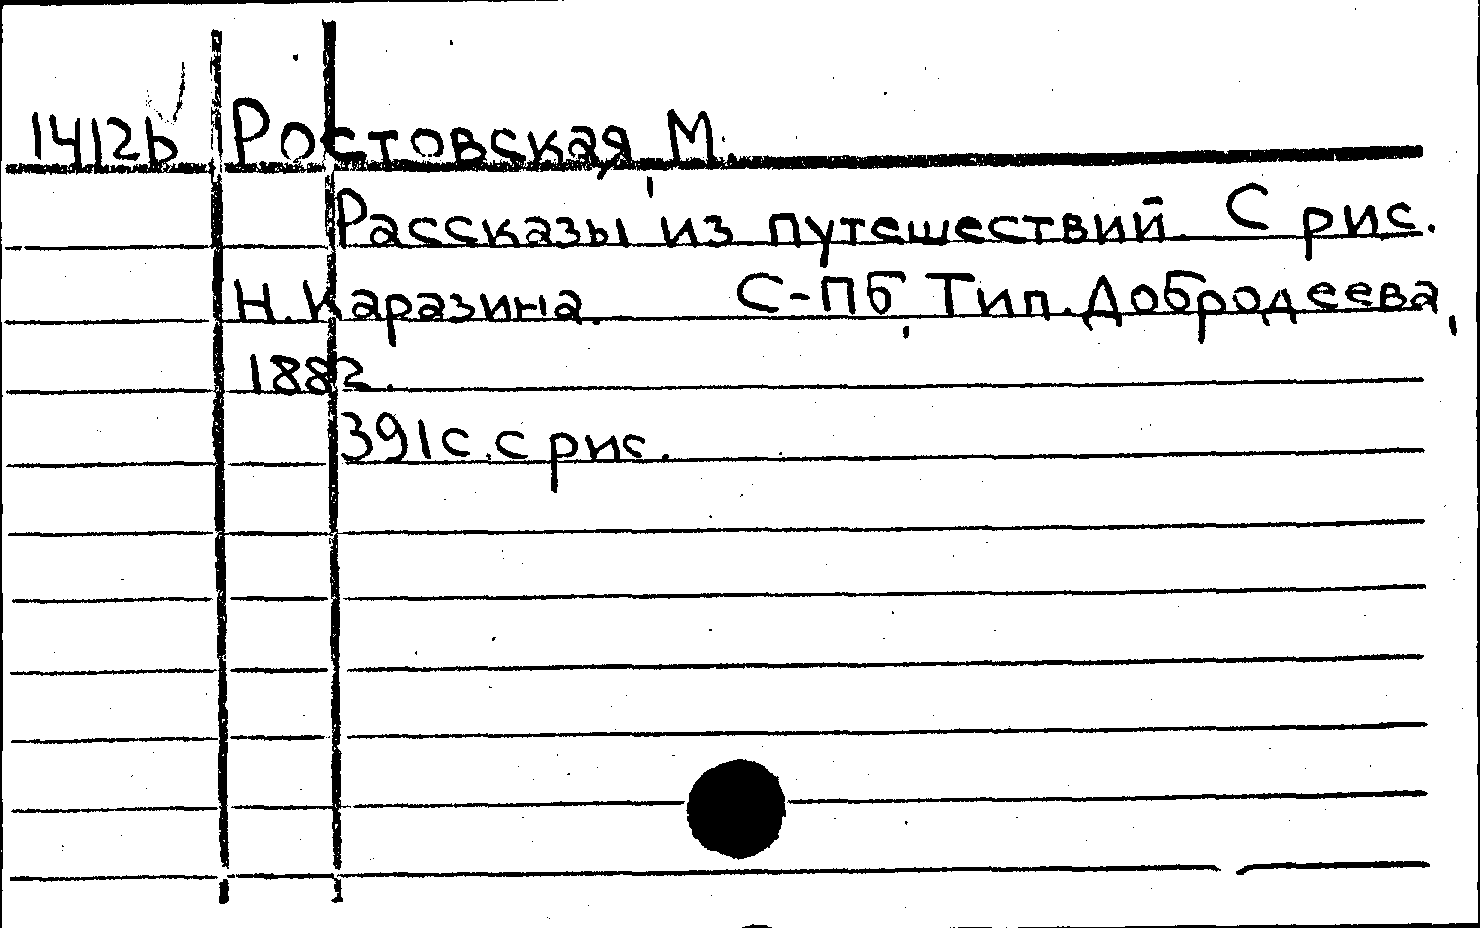 1412b Ростовская, М.
Рассказы из путешествий. С рис.
Н. Каразина. С-Пб, Тип. Добродеева,
1882.
391 с. с рис.